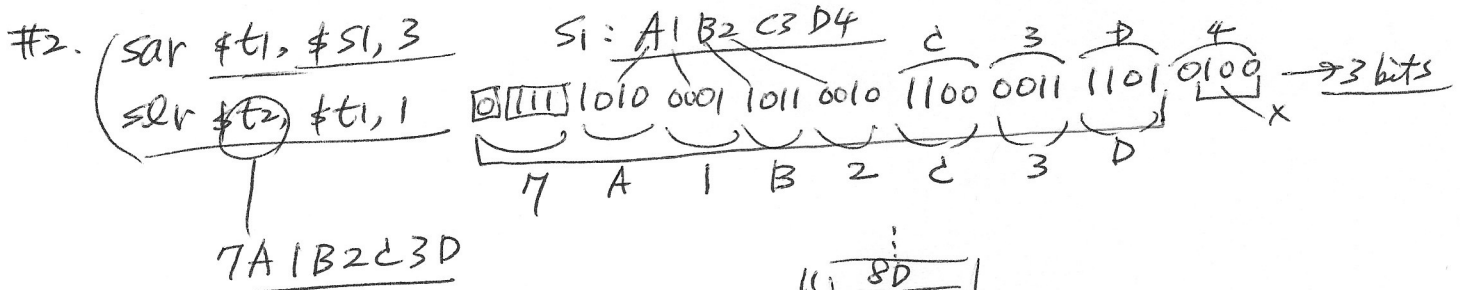 #2. sar $t1, $s1, 3 S1: A1B2 C3D4 C 3 D 4
slr $t2, $t1, 1 0 111 1010 0001 1011 0010 1100 0011 1101 0100 → 3 bits
x
7 A 1 B 2 C 3 D
7A1B2C3D
8D